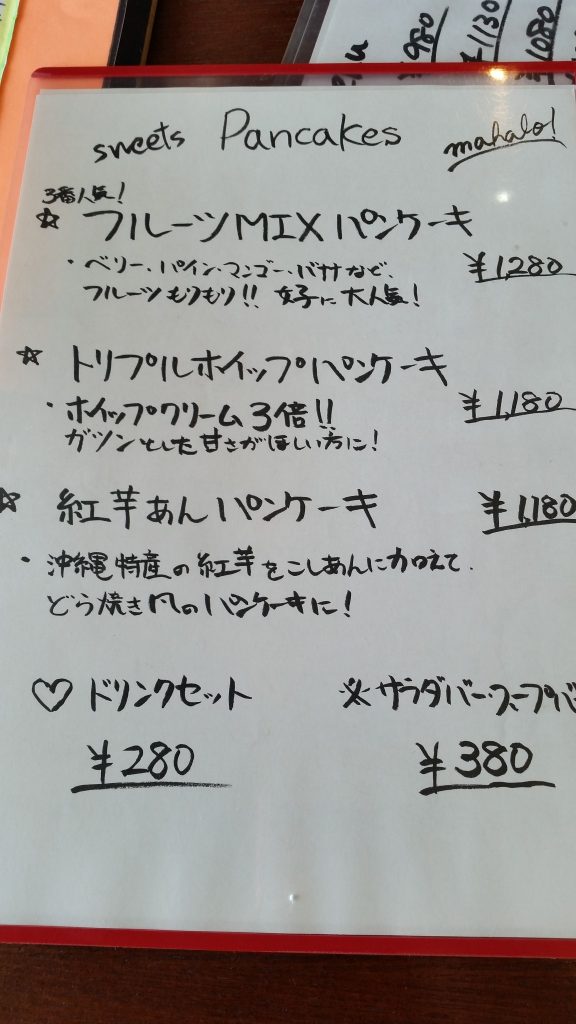 ¥980
¥1130
¥1080
sweets Pancakes mahalo!
3番人気!
☆ フルーツMIXパンケーキ
・ベリー・パイン・マンゴー・バナナなど、
¥1,280
フルーツもりもり!! 女子に大人気!
☆ トリプルホイップパンケーキ
¥1,180
・ホイップクリーム3倍!!
ガツンとした甘さがほしい方に!
☆ 紅芋あんパンケーキ ¥1,180
・沖縄特産の紅芋をこしあんに加えて、
どら焼き風のパンケーキに!
♡ ドリンクセット ※サラダバー・スープバ
¥280 ¥380